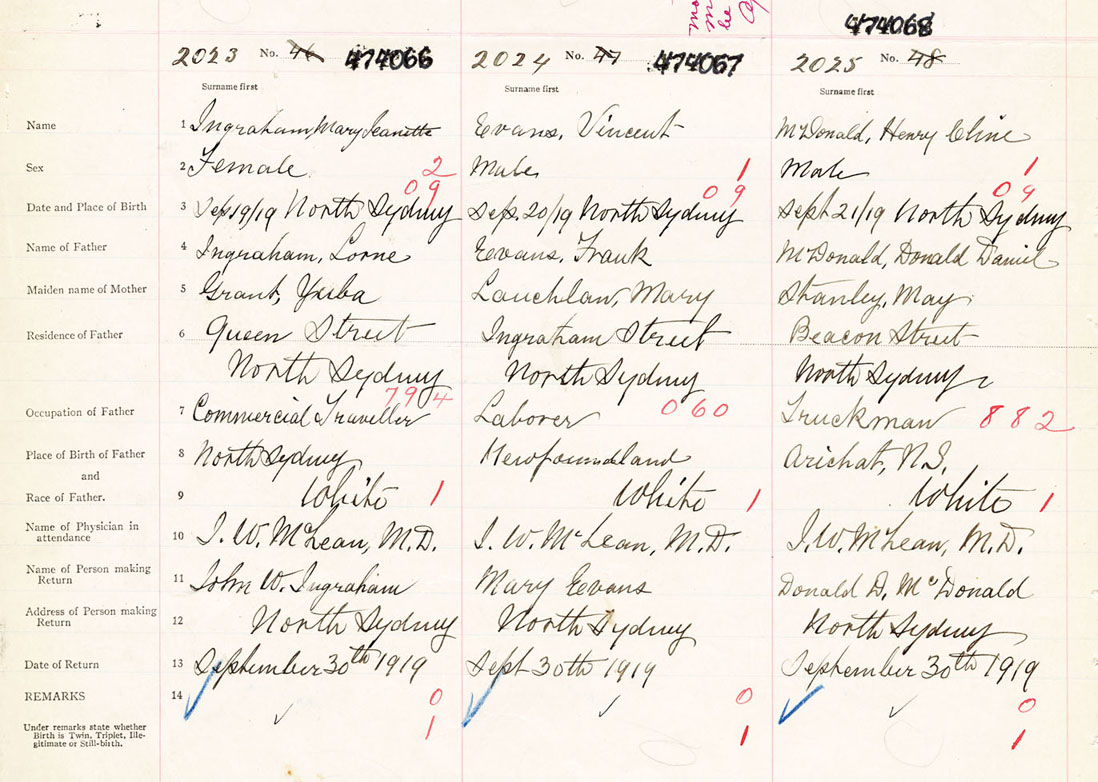 474068
2023 No. 46 474066 2024 No. 47 474067 2025 No. 48
Surname first Surname first Surname first
Name 1 Ingraham, Mary Jeanette Evans, Vincent McDonald, Henry Cline
Sex 2 Female 2 Male 1 Male 1
09 09 09
Date and Place of Birth 3 Sep 19/19 North Sydney Sep. 20/19 North Sydney Sept 21/19 North Sydney
Name of Father 4 Ingraham, Lorne Evans, Frank McDonald, Donald Daniel
Maiden name of Mother 5 Grant, Lauchlan, Mary Stanley, May
Residence of Father 6 Queen Street Ingraham Street Beacon Street
North Sydney North Sydney North Sydney
794
Occupation of Father 7 Commercial Traveller Laborer 060 Truckman 882
Place of Birth of Father 8 North Sydney Newfoundland Arichat, N.S.
and
Race of Father. 9 White 1 White 1 White 1
Name of Physician in
attendance 10 J. W. McLean, M.D. J. W. McLean, M.D. J. W. McLean, M.D.
Name of Person making
Return 11 John W. Ingraham Mary Evans Donald D. McDonald
Address of Person making
Return 12 North Sydney North Sydney North Sydney
Date of Return 13 September 30th 1919 Sept 30th 1919 September 30th 1919
REMARKS 14 0 0 0
Under remarks state whether
Birth is Twin, Triplet, Ille-
gitimate or Still-birth.
1 1 1